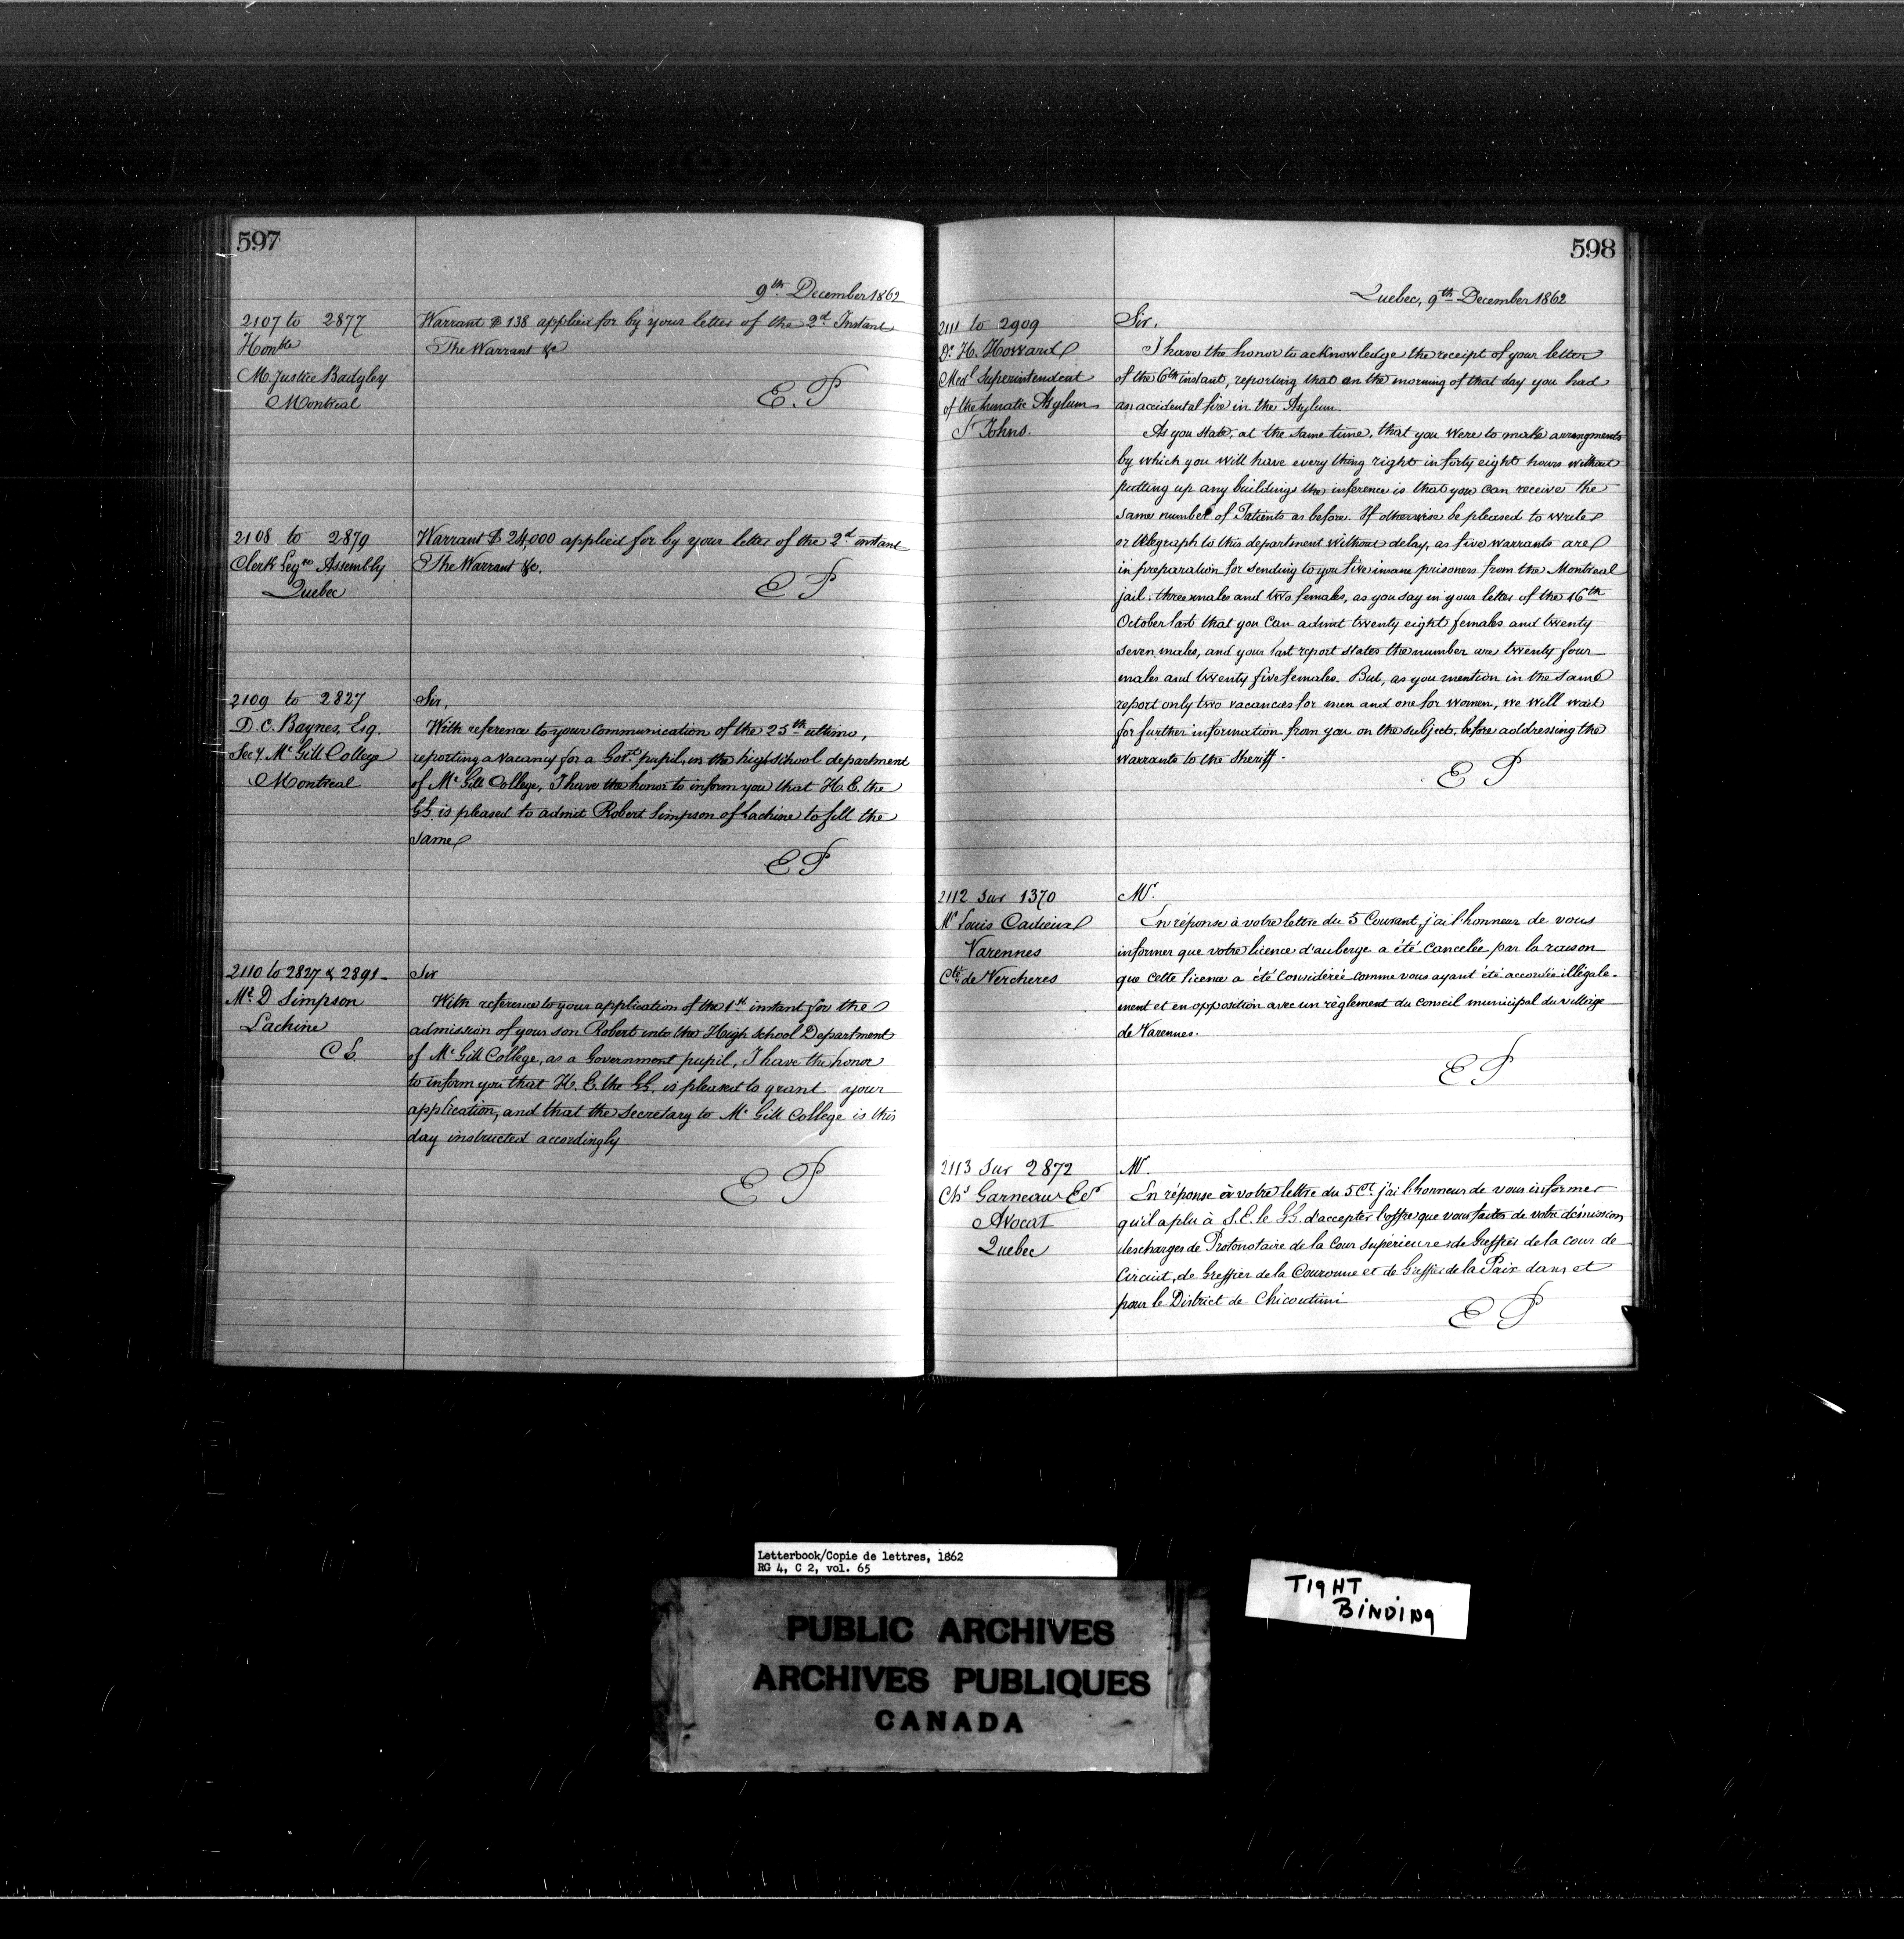 597
9th December 1862
2107 to 2877
Honble
M. Justice Badgley
Montreal
Warrant $ 138 applied for by your letter of the 2d Instant
The Warrant &c
E. P
2108 to 2879
Clerk Legve Assembly
Quebec
Warrant $ 24,000 applied for by your letter of the 2d instant
The Warrant &c.
E P
2109 to 2827
D. C. Baynes, Esq.
Secy Mc Gill College
Montreal
Sir,
With reference to your communication of the 25th ultimo,
reporting a vacancy for a Govt pupil, in the high school department
of Mc Gill College, I have the honor to inform you that H. E. the
GG. is pleased to admit Robert Simpson of Lachine to fill the
same
E P
2110 to 2827 & 2891-
Mr D Simpson
Lachine
C E.
Sir
With reference to your application of the 1st instant for the
admission of your son Robert into the High School Department
of Mc Gill College, as a Government pupil, I have the honor
to inform you that H. E. the GG. is pleased to grant your
application, and that the Secretary to Mc Gill College is this
day instructed accordingly
E P
598
Quebec, 9th December 1862
2111 to 2909
Dr H. Howard
Medl Superintendent
of the Lunatic Asylum
St Johns.
Sir,
I have the honor to acknowledge the receipt of your letter
of the 6th instant, reporting that on the morning of that day you had
an accidental fire in the Asylum.
As you state, at the same time, that you were to make arrangments
by which you will have every thing right in forty eight hours without
putting up any buildings the inference is that you can receive the
same number of Patients as before. If otherwise be pleased to write
or telegraph to this department without delay, as five warrants are
in preparation for sending to you five insane prisoners from the Montreal
jail: three males and two females, as you say in your letter of the 16th
October last that you can admit twenty eight females and twenty
seven males, and your last report states the number are twenty four
males and twenty five females. But, as you mention in the same
report only two vacancies for men and one for women, we will wait
for further information from you on the subject, before addressing the
warrants to the Sheriff.
E P
2112 sur 1370
Mr Louis Cadieux
Varennes
Cté de Vercheres
Mr.
En réponse à votre lettre du 5 Courant, j'ai l'honneur de vous
informer que votre licence d'auberge a été cancelée par la raison
que cette licence a été considérée comme vous ayant été accordée illégale-
ment et en opposition avec un règlement du conseil municipal du village
de Varennes.
E P
2113 sur 2872
Chs Garneau Er
Avocat
Quebec
Mr.
En réponse à votre lettre du 5 Ct. j'ai l'honneur de vous informer
qu'il a plu à S. E. le GG. d'accepter l'offre que vous faites de votre démission
des charges de Protonotaire de la Cour Supérieure, de Greffier de la cour de
Circuit, de Greffier de la Couronne et de Greffier de la Paix dans et
pour le District de Chicoutimi
E P
Letterbook/Copie de lettres, 1862
RG 4, C 2, vol. 65
PUBLIC ARCHIVES
ARCHIVES PUBLIQUES
CANADA
TIGHT
BINDING